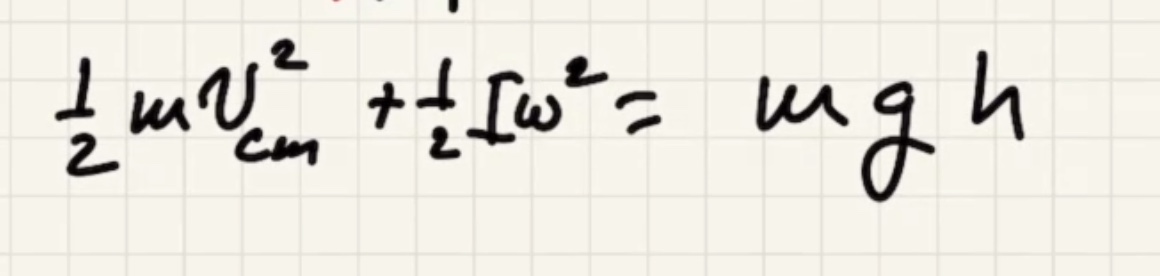 ½ m v²cm + ½ I ω² = m g h